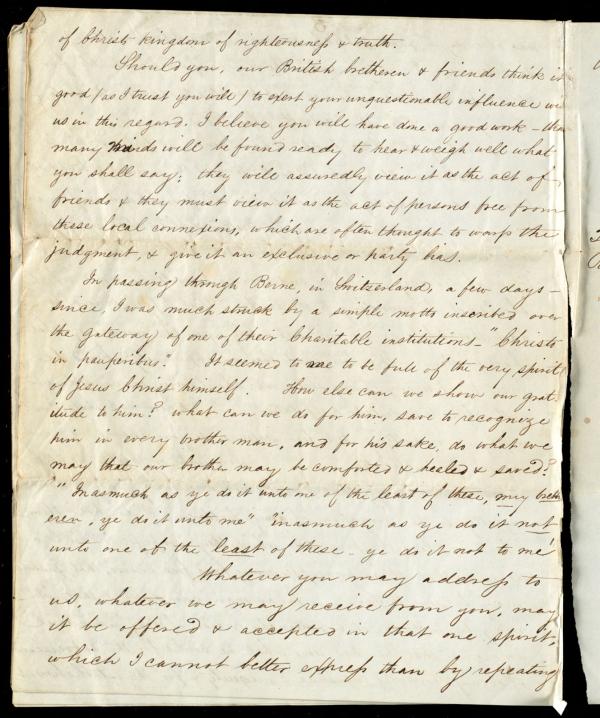 of Christs kingdom of righteousness & truth.
Should you, our British bretheren & friends think it
good (as I trust you will) to exert your unquestionable influence
us in this regard. I believe you will have done a good work -
many minds will be found ready to hear & weigh well what
you shall say; they will assuredly view it as the act of
friends & they must view it as the act of persons free from
these local connexions, which are often thought to warp the
judgment, & give it an exclusive or party bias.
In passing through Berne, in Switzerland, a few days-
since, I was much struck by a simple motto inscribed over
the gateway of one of their Charitable institutions - "Christo
in pauperibus." It seemed to me to be full of the very spirit
of Jesus Christ himself. How else can we show our grat
itude to him? what can we do for him, save to recognize
him in every brother man, and for his sake, do what we
may that our brother may be comforted & healed & saved?
"Inasmuch as ye do it unto one of the least of these, my breth
eren, ye do it unto me" "inasmuch as ye do it not
unto one of the least of these - ye do it not to me"
Whatever you may address to
us, whatever we may receive from you, may
it be offered & accepted in that one spirit,
which I cannot better express than by repeating